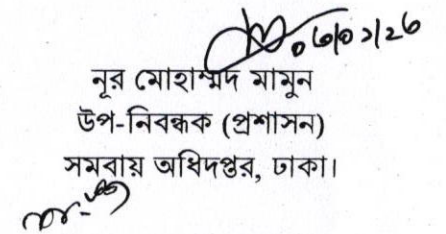 ০৬/০১/২৬
নূর মোহাম্মদ মামুন
উপ-নিবন্ধক (প্রশাসন)
সমবায় অধিদপ্তর, ঢাকা।